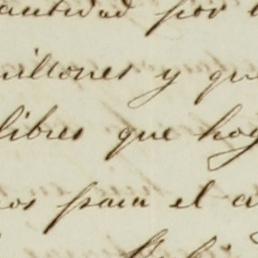 cantidad por
millones y que
libres que hoy
os para el a